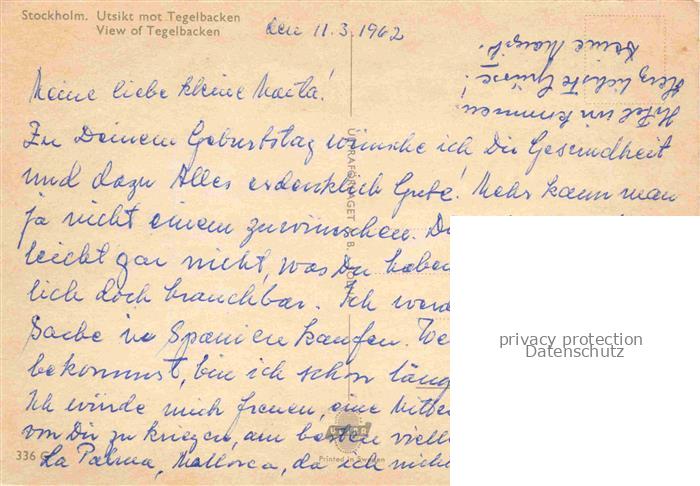 Stockholm. Utsikt mot Tegelbacken
View of Tegelbacken
den 11.3.1962
Meine liebe kleine Marla!
Zu Deinem Geburtstag wünsche ich Dir Gesundheit
und dazu Alles erdenklich Gute! Mehr kann man
ja nicht einem zuwünschen. Du
leicht gar nicht, was Du haben
lich doch brauchbar. Ich werd
Sache in Spanien kaufen. We
bekommst, bin ich schon läng
Ich würde mich freuen, eine
von Dir zu kriegen, am besten viell
La Palma, Mallorca, da ich nicht
Hotel
Herzlichste Grüsse!
Deine
ULTRAFÖRLAGET A. B.
ULTRA
336
Printed in Sweden
privacy protection
Datenschutz